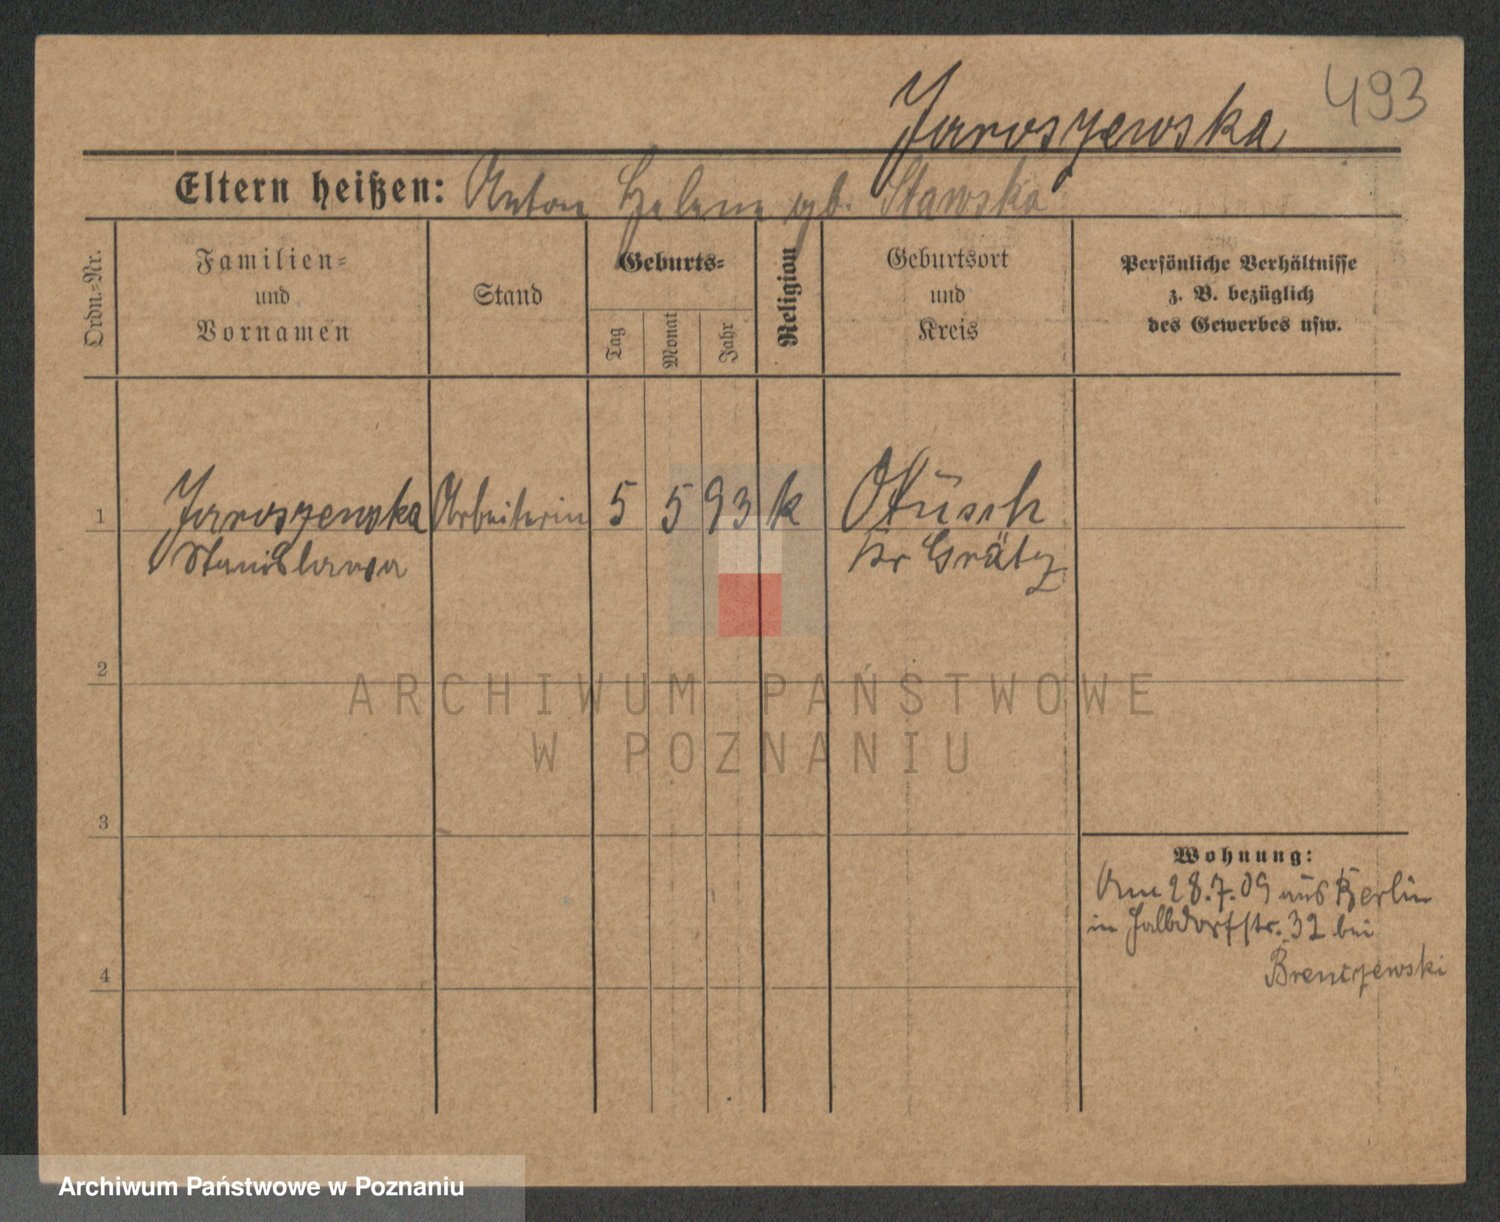 Jaroszewska 493
Eltern heißen: Anton Helene gb. Stawska
Ordn.-Nr.
Familien-
und
Vornamen
Stand
Geburts-
Tag
Monat
Jahr
Religion
Geburtsort
und
Kreis
Persönliche Verhältnisse
z. B. bezüglich
des Gewerbes usw.
1 Jaroszewska Arbeiterin 5 5 93 k Otüsch
Stanislawa Kr Grätz
2
ARCHIWUM PAŃSTWOWE
W POZNANIU
3
Wohnung:
Am 28.7.09 aus Berlin
in Halbdorfstr. 32 bei
4
Archiwum Państwowe w Poznaniu